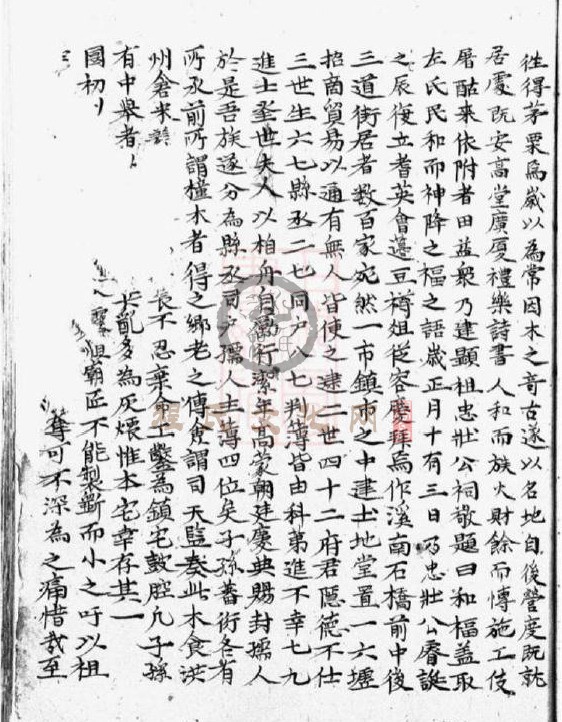 徃得茅栗爲嵗以為常因木之音古遂以名地自後營度既就
居處既安高堂廣厦禮樂詩書人和而族大財餘而慱施工伎
屠酤來依附者田益衆乃建顯祖忠壯公祠敬題曰和福盖取
左氏民和而神降之福之語嵗正月十有三日乃忠壯公

誕
之辰復立耆英會籩豆

俎從容慶拜爲作溪南石橋前中後
三道街居者数百家宛然一市鎮市之中建土地堂置一六壥
招商貿易以通有無人皆使之建二世四十二府君隠德不仕
三世生六七縣丞二七司户八七判簿皆由科苐進不幸七九
進士圶世夫人以相舟自

行

年高蒙朝廷慶典賜封孺人
於是吾族遂分為縣丞司户孺人主薄四位矣子孫蕃衍各有
所承前所謂橦木者得之鄉老之傳僉謂司天監奏此木食洪
州倉米
長不忍棄命工鑿為鎮宅鼓腔凡子孫
有中舉者
兵亂多為灰燼惟本宅幸存其一
國初
霸匠不能製斵而小之吁以祖
奪可不深為之痛惜㦲至